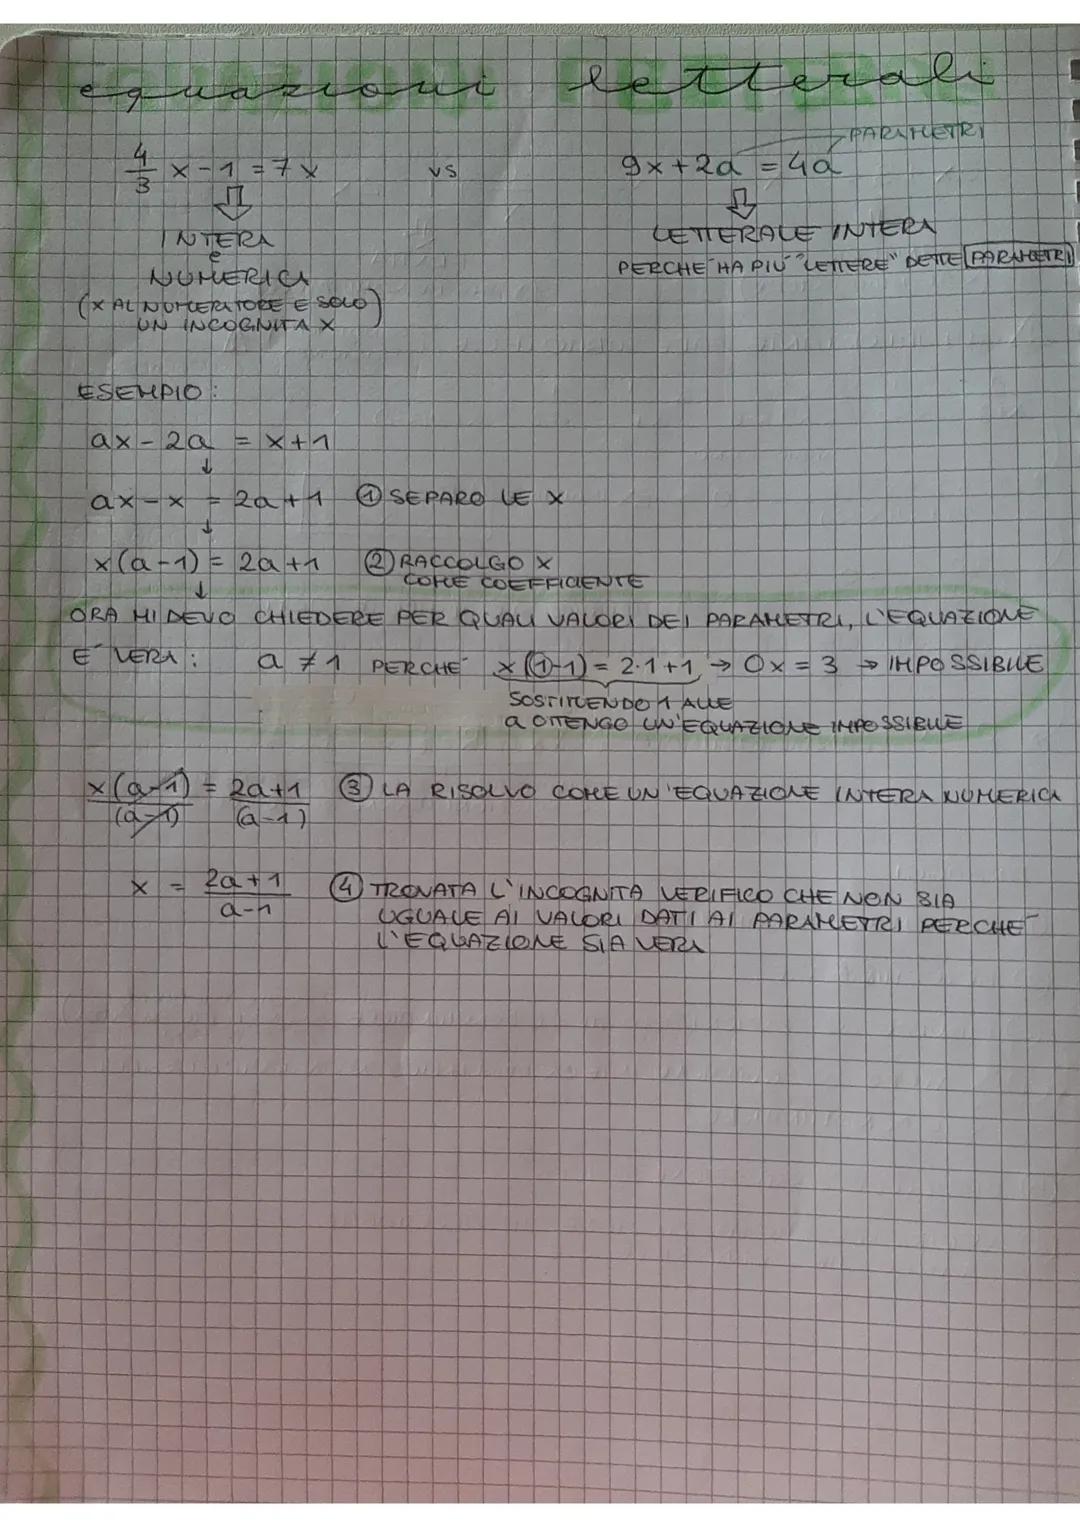 equazioni letterali
PARAMETRI
4/3 x - 1 = 7x vs 9x + 2a = 4a
INTERA
e
NUMERICA
(X AL NUMERATORE E SOLO
UN INCOGNITA X)
LETTERALE INTERA
PERCHE' HA PIU' "LETTERE" DETTE PARAMETRI
ESEMPIO:
ax - 2a = x + 1
↓
ax - x = 2a + 1 ① SEPARO LE X
↓
x(a-1) = 2a + 1 ② RACCOLGO X
COME COEFFICIENTE
↓
ORA MI DEVO CHIEDERE PER QUALI VALORI DEI PARAMETRI, L'EQUAZIONE
E' VERA: a ≠ 1 PERCHE' x(1-1) = 2·1+1 → 0x = 3 → IMPOSSIBILE
SOSTITUENDO 1 ALLE
a OTTENGO UN'EQUAZIONE IMPOSSIBILE
x(a-1)/(a-1) = 2a+1/(a-1) ③ LA RISOLVO COME UN'EQUAZIONE INTERA NUMERICA
x = 2a+1/a-1 ④ TROVATA L'INCOGNITA VERIFICO CHE NON SIA
UGUALE AI VALORI DATI AI PARAMETRI PERCHE'
L'EQUAZIONE SIA VERA